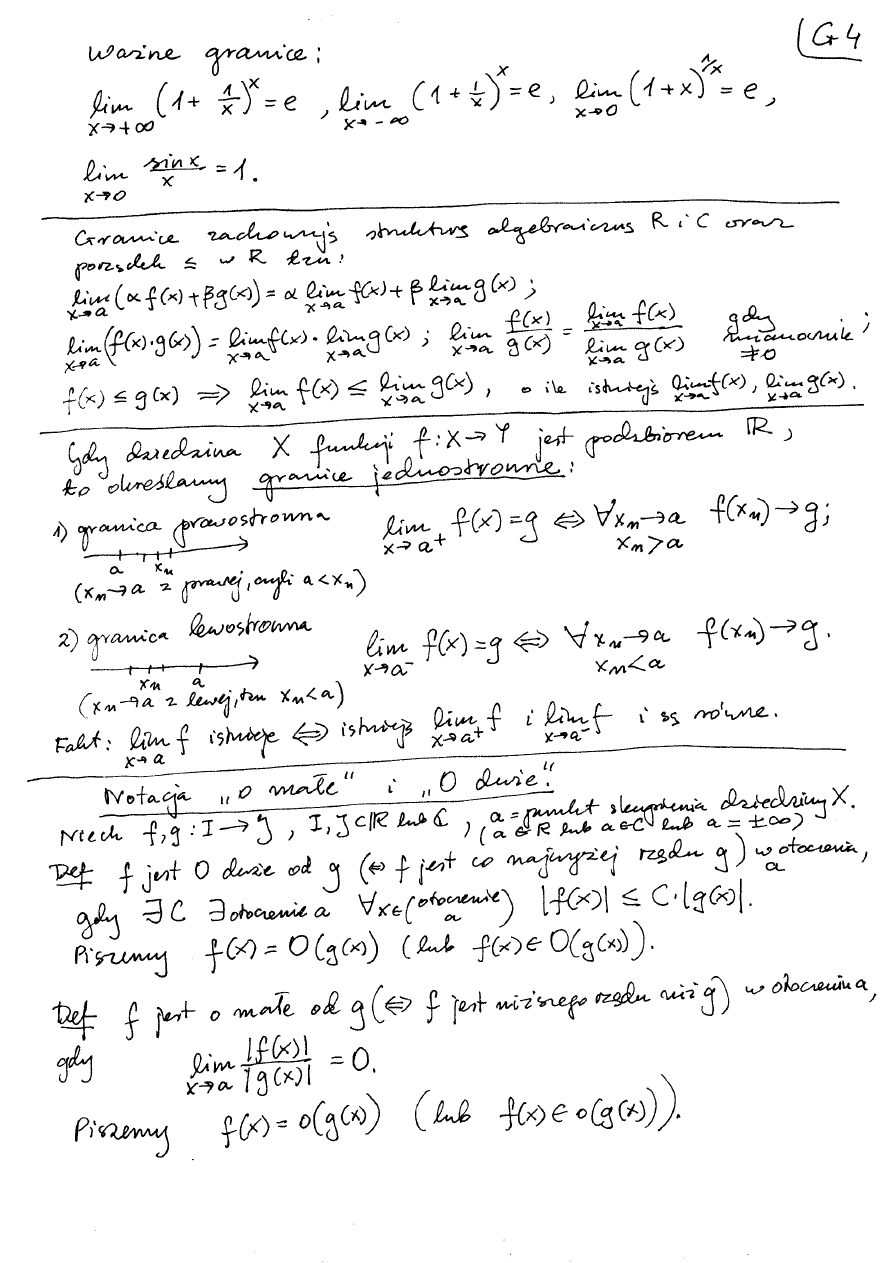 G4
Ważne granice:
lim x→+∞ (1+ 1/x)^x = e , lim x→-∞ (1+ 1/x)^x = e, lim x→0 (1+x)^1/x = e,
lim x→0 sin x/x = 1.
Granice zachowują strukturę algebraiczną R i C oraz
porządek ≤ w R tzn:
lim x→a (αf(x)+βg(x)) = α lim x→a f(x) + β lim x→a g(x) ;
lim x→a (f(x)·g(x)) = lim x→a f(x) · lim x→a g(x) ; lim x→a f(x)/g(x) = lim x→a f(x) / lim x→a g(x) gdy mianownik ≠0 ;
f(x) ≤ g(x) ⟹ lim x→a f(x) ≤ lim x→a g(x) , o ile istnieją lim x→a f(x), lim x→a g(x).
Gdy dziedzina X funkcji f: X→Y jest podzbiorem ℝ,
to określamy granice jednostronne:
1) granica prawostronna lim x→a⁺ f(x) = g ⇔ ∀xn→a xn>a f(xn)→g;
a xn
(xn→a z prawej, czyli a<xn)
2) granica lewostronna lim x→a⁻ f(x) = g ⇔ ∀xn→a xn<a f(xn)→g.
xn a
(xn→a z lewej, tzn xn<a)
Fakt: lim x→a f istnieje ⇔ istnieją lim x→a⁺ f i lim x→a⁻ f i są równe.
Notacja „o małe" i „O duże".
Niech f,g : I→J , I,J⊂ℝ lub ℂ , a = punkt skupienia dziedziny X.
(a∈ℝ lub a∈ℂ lub a=±∞)
Def f jest O duże od g (⇔ f jest co najwyżej rzędu g) w otoczeniu a,
gdy ∃C ∃otoczenie a ∀x∈(otoczenie a) |f(x)| ≤ C·|g(x)|.
Piszemy f(x) = O(g(x)) (lub f(x)∈O(g(x))).
Def f jest o małe od g (⇔ f jest niższego rzędu niż g) w otoczeniu a,
gdy lim x→a |f(x)|/|g(x)| = 0.
Piszemy f(x) = o(g(x)) (lub f(x)∈o(g(x))).